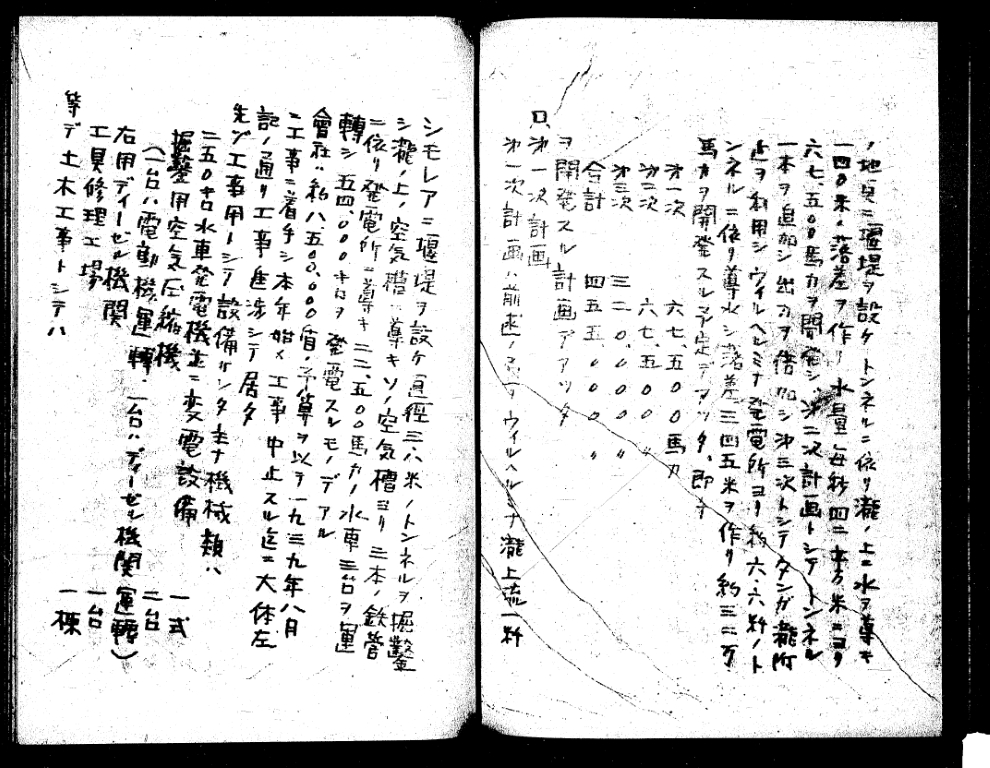 ノ地点ニ堰堤ヲ設ケトンネルニ依リ瀧ノ上ニ水ヲ導キ
一四〇米ノ落差ヲ作リ水量毎秒四二立方米ニヨリ
六七、五〇〇馬力ヲ開発シ、第二次計画トシテトンネル
一本ヲ追加シ出力ヲ倍加シ第三次トシテタンガ瀧附
近ヲ利用シウイルヘルミナ発電所ヨリ約六、六粁ノト
ンネルニ依リ導水シ落差三四五米ヲ作リ約三二万
馬力ヲ開発スル予定デアツタ、即チ
第一次 六七、五〇〇馬力
第二次 六七、五〇〇〃
第三次 三二〇、〇〇〇〃
合計 四五五、〇〇〇〃
ヲ開発スル計画デアツタ
口第一次計画
第一次計画ハ前述ノ ウイルヘルミナ瀧上流一粁
シモレアニ堰堤ヲ設ケ直径三、八米ノトンネルヲ掘鑿
シ瀧ノ上ノ空気槽ニ導キソノ空気槽ヨリ三本ノ鉄管
ニ依リ発電所ニ導キ二二、五〇〇馬力ノ水車三台ヲ運
轉シ五四、〇〇〇キロヲ発電スルモノデアル
會社ハ約八、五〇〇、〇〇〇盾ノ予算ヲ以テ一九三九年八月
ニ工事ニ着手シ本年始メ工事中止スル迄ニ大体左
記ノ通リ工事進渉シテ居タ
先ヅ工事用トシテ設備サレタ主ナ機械類ハ
二五〇キロ水車発電機並ニ変電設備 一式
掘鑿用空気圧縮機 二台
(一台ハ電動機運轉、一台ハディーゼル機関運轉)
右用ディーゼル機関 一台
工具修理工場 一棟
等デ土木工事トシテハ